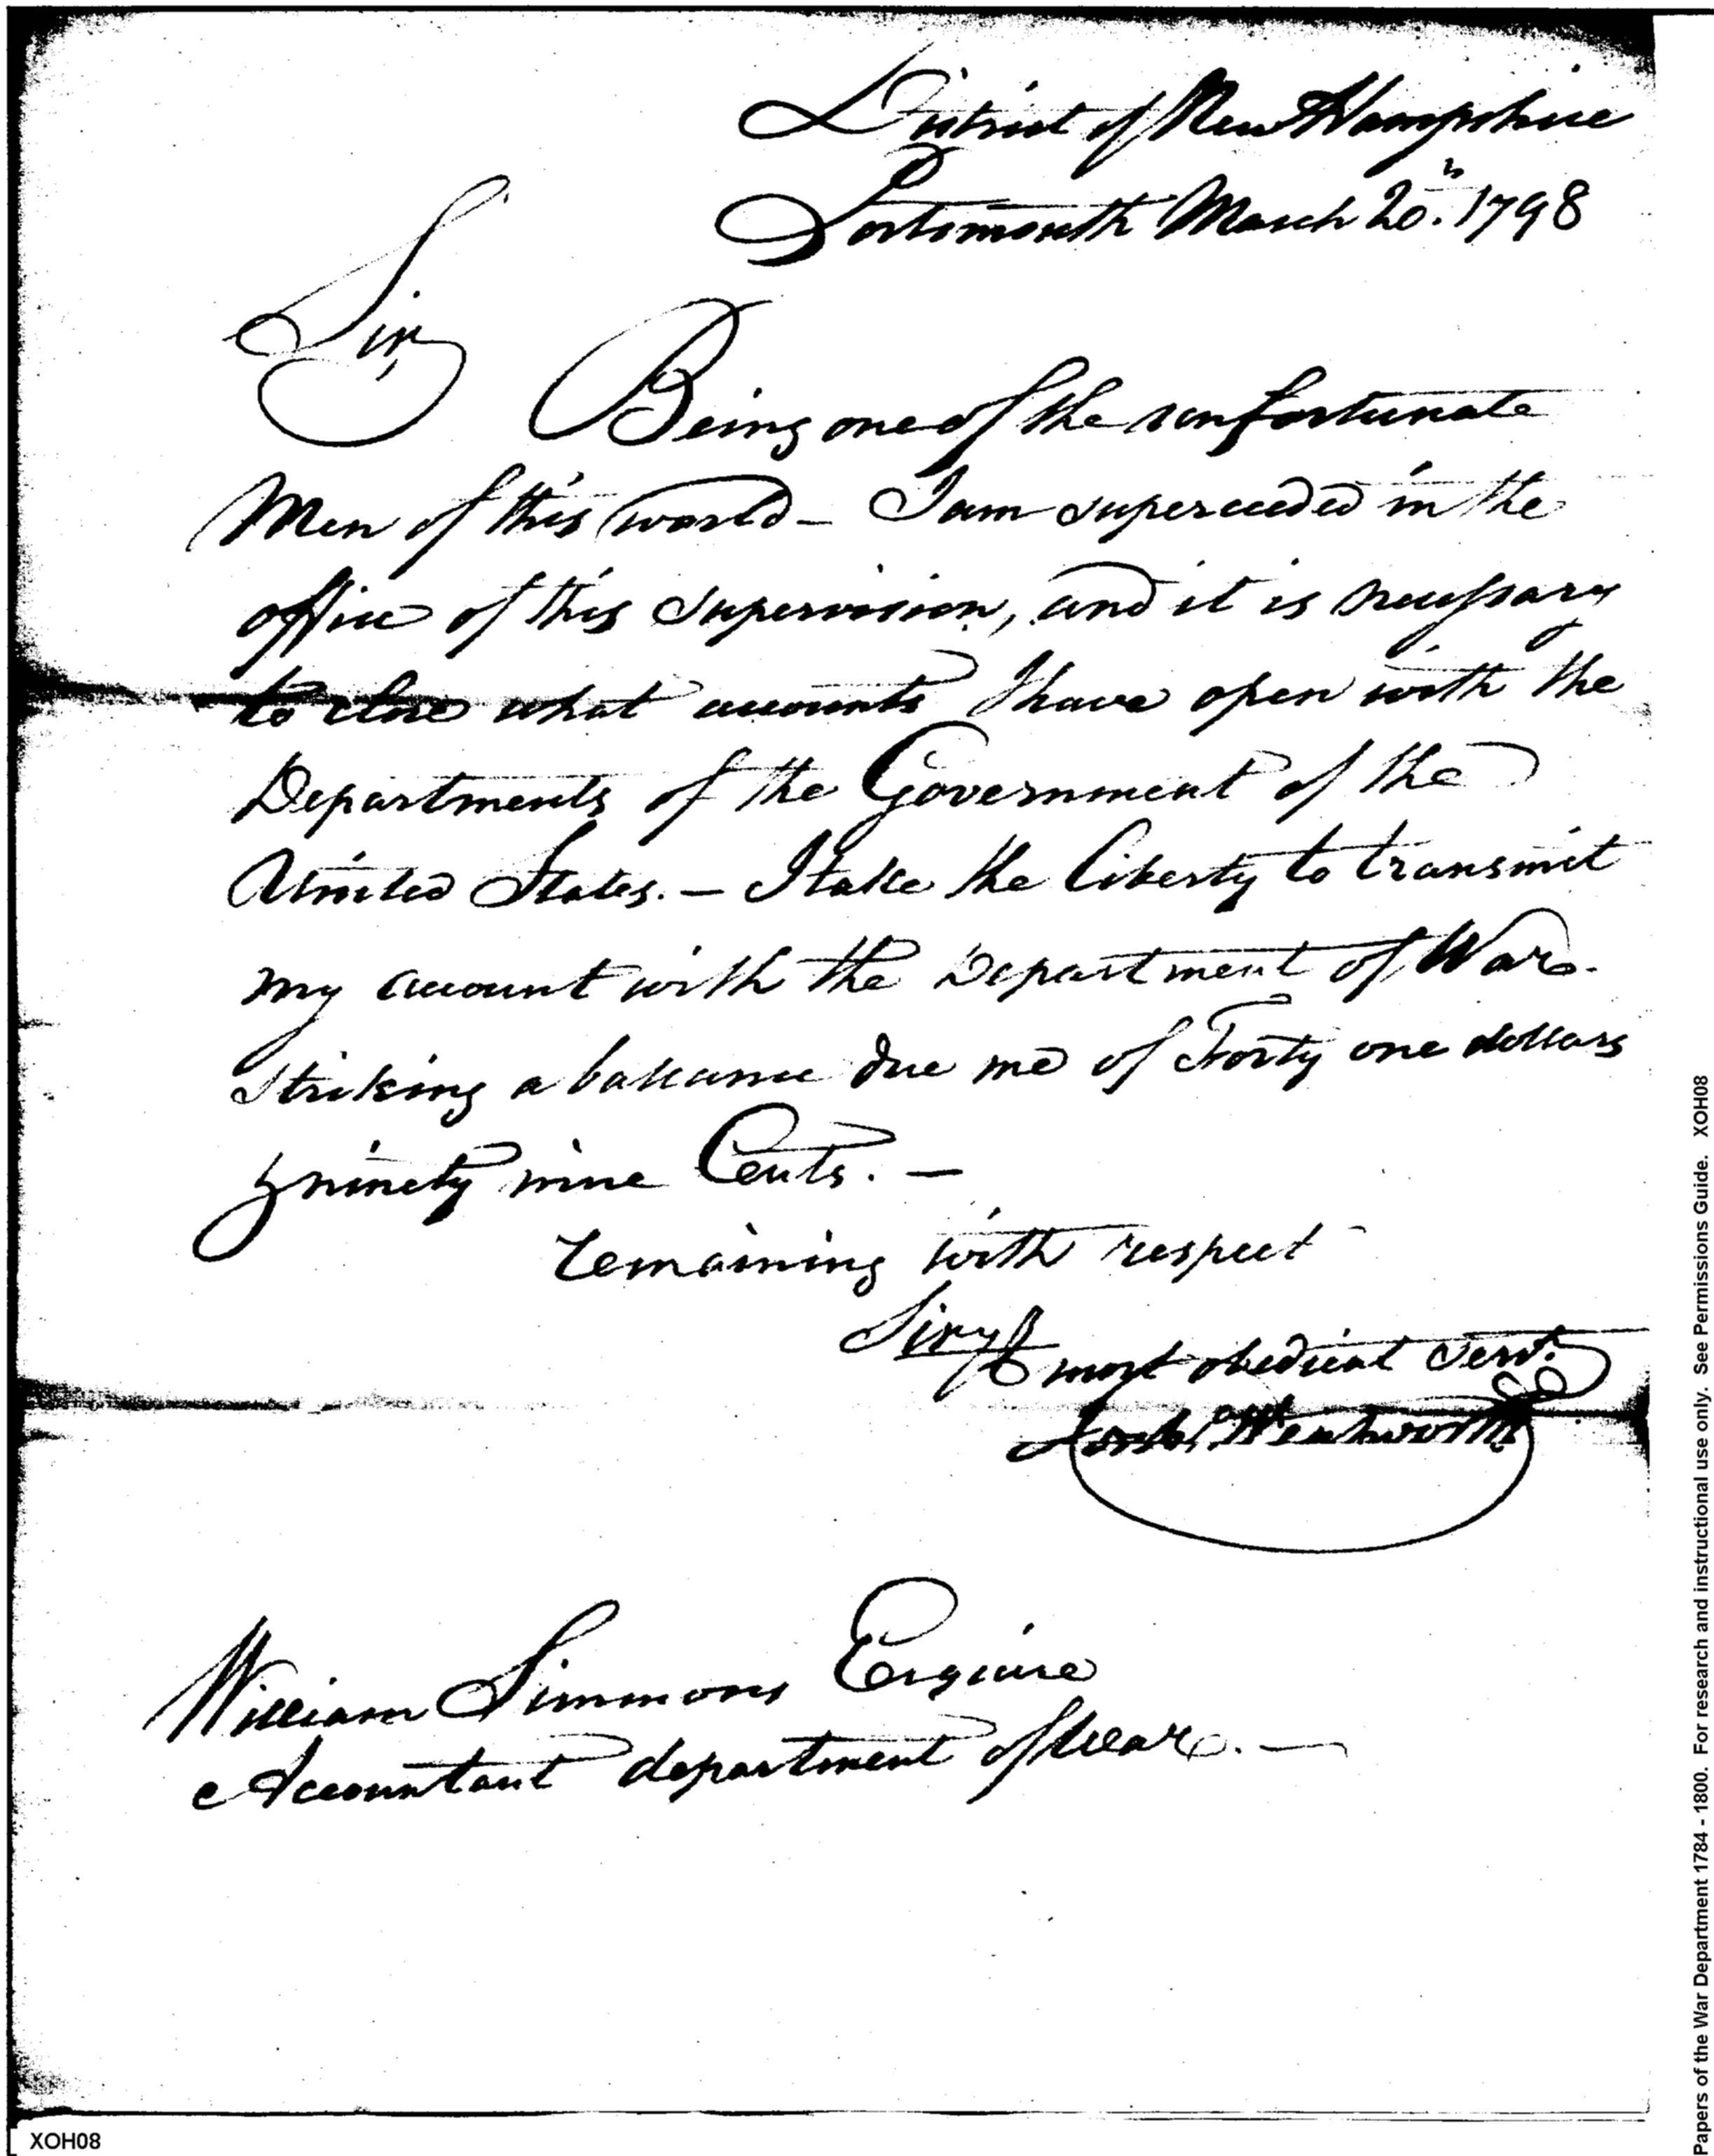 District of New Hampshire
Portsmouth March 20.th 1798
Sir,
Being one of the unfortunate
Men of this world – I am superceeded in the
office of this Supervision, and it is necessary
to close what accounts I have open with the
Departments of the Government of the
United States. – I take the liberty to transmit
my account with the Department of War.
striking a balance due me of Forty one dollars
& ninety nine Cents. –
remaining with respect
Sir yr
most obedient servt.
Wentworth
William Simmons Esquire
Accountant department of War. –
XOH08
Papers of the War Department 1784 - 1800. For research and instructional use only. See Permissions Guide. XOH08